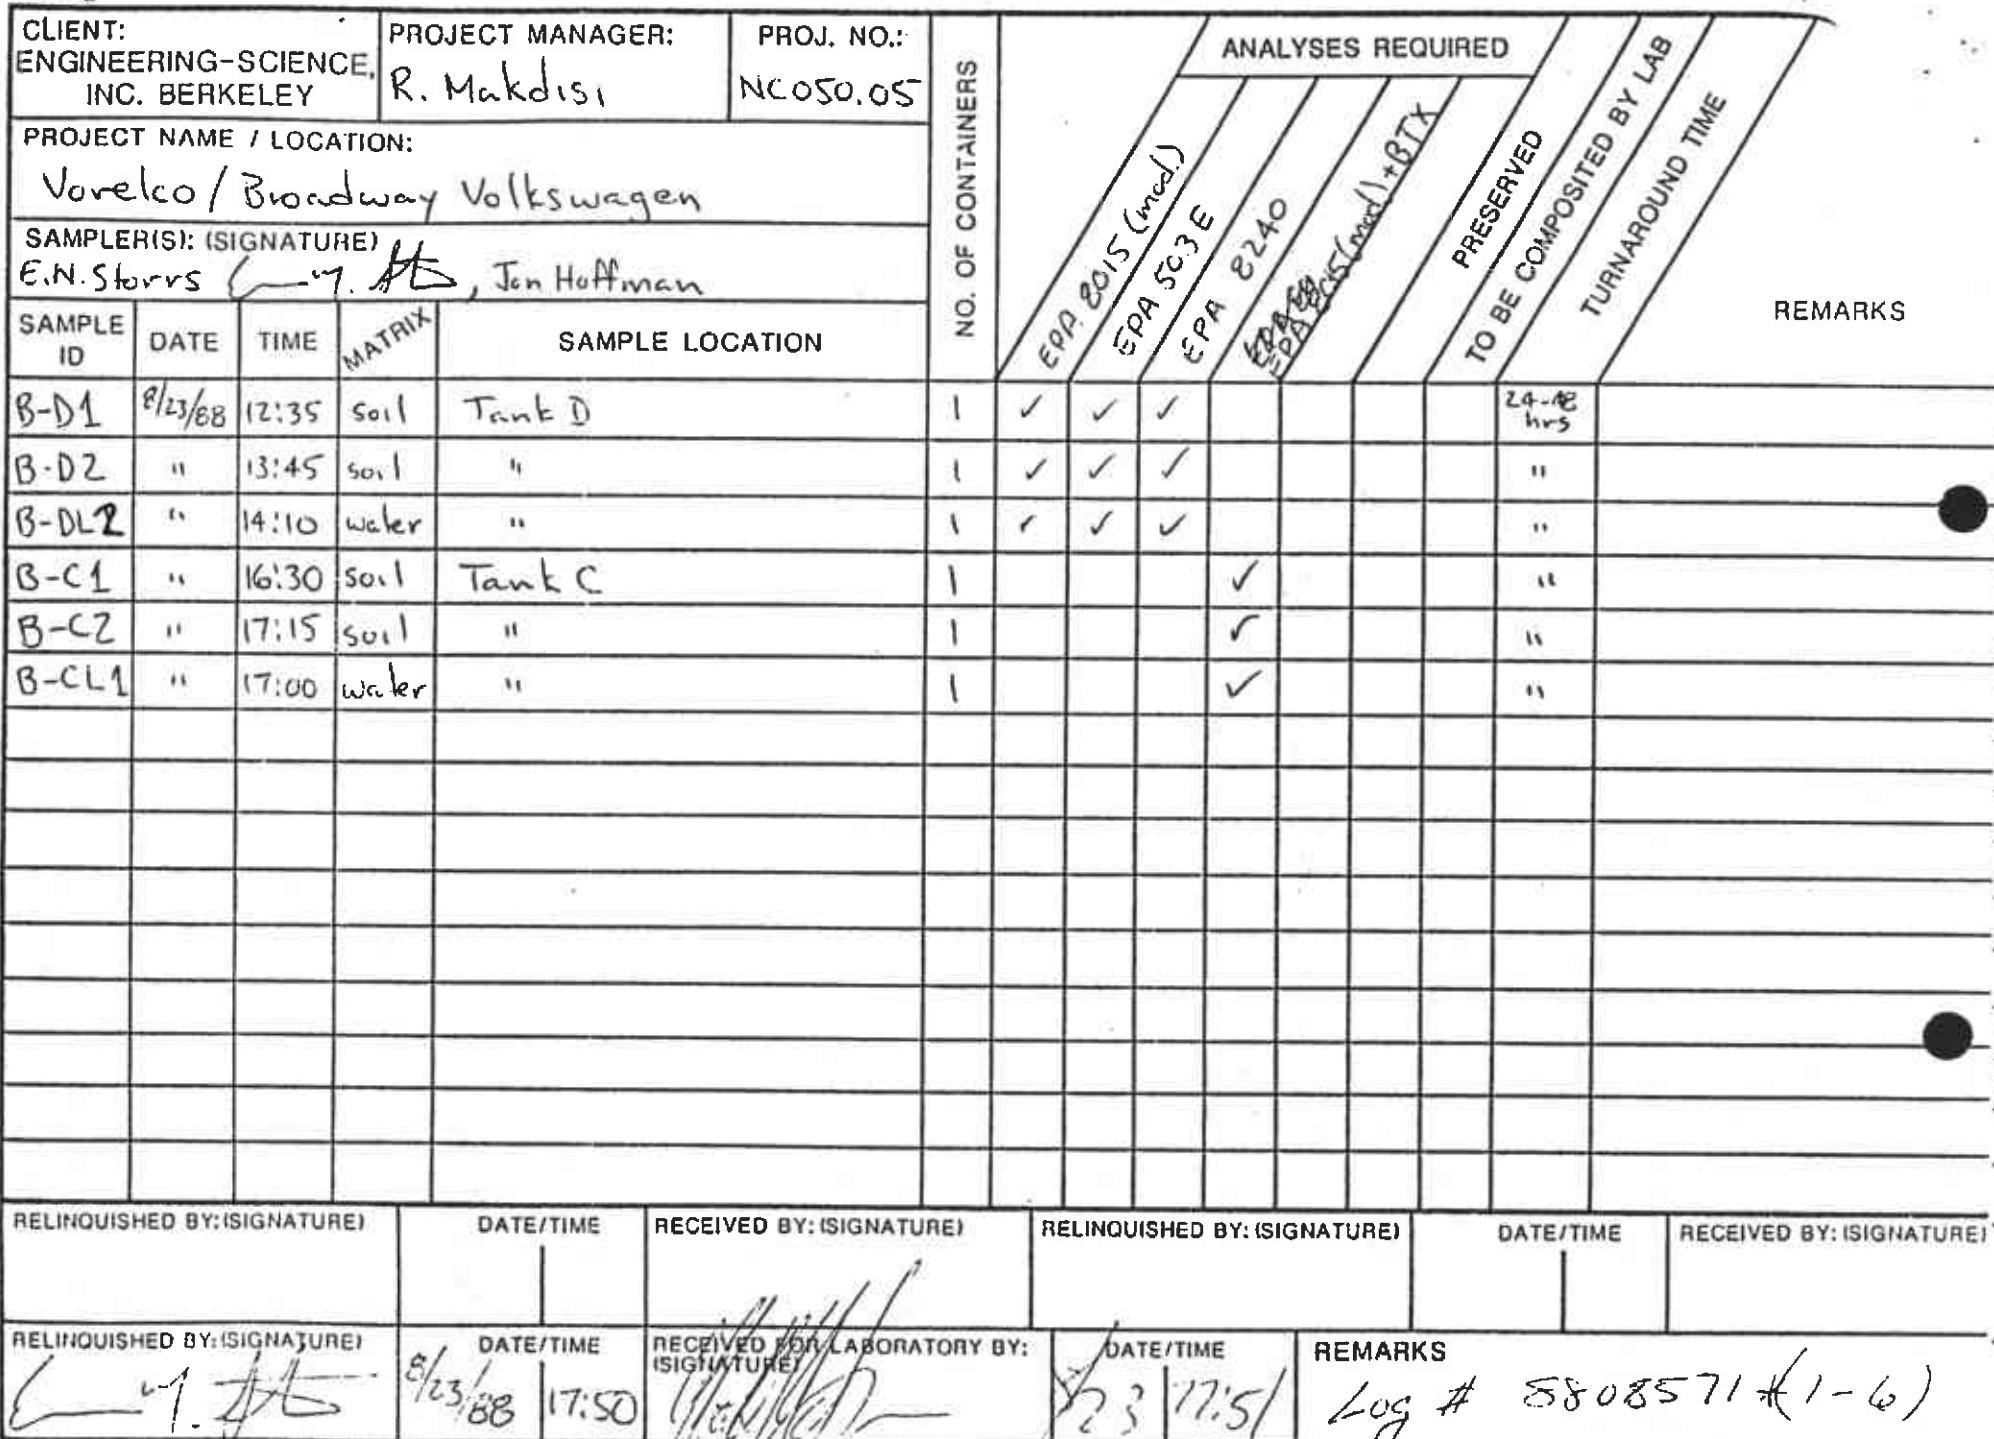 CLIENT:
ENGINEERING-SCIENCE,
INC. BERKELEY
PROJECT MANAGER:
R. Makdisi
PROJ. NO.:
NC050.05
PROJECT NAME / LOCATION:
Vorelco / Broadway Volkswagen
SAMPLER(S): (SIGNATURE)
E.N. Storrs , Jon Hoffman
NO. OF CONTAINERS
ANALYSES REQUIRED
EPA 8015 (mod.)
EPA 503E
EPA 8240
EPA 8015 (mod) + BTX
PRESERVED
TO BE COMPOSITED BY LAB
TURNAROUND TIME
REMARKS
SAMPLE ID DATE TIME MATRIX SAMPLE LOCATION
B-D1 8/23/88 12:35 soil Tank D 1 ✓ ✓ ✓ 24-48 hrs
B-D2 " 13:45 soil " 1 ✓ ✓ ✓ "
B-DL2 " 14:10 water " 1 ✓ ✓ ✓ "
B-C1 " 16:30 soil Tank C 1 ✓ "
B-C2 " 17:15 soil " 1 ✓ "
B-CL1 " 17:00 water " 1 ✓ "
RELINQUISHED BY: (SIGNATURE) DATE/TIME RECEIVED BY: (SIGNATURE) RELINQUISHED BY: (SIGNATURE) DATE/TIME RECEIVED BY: (SIGNATURE)
RELINQUISHED BY: (SIGNATURE) DATE/TIME RECEIVED FOR LABORATORY BY: (SIGNATURE) DATE/TIME REMARKS
8/23/88 17:50 17:51 Log # 8808571 (1-6)